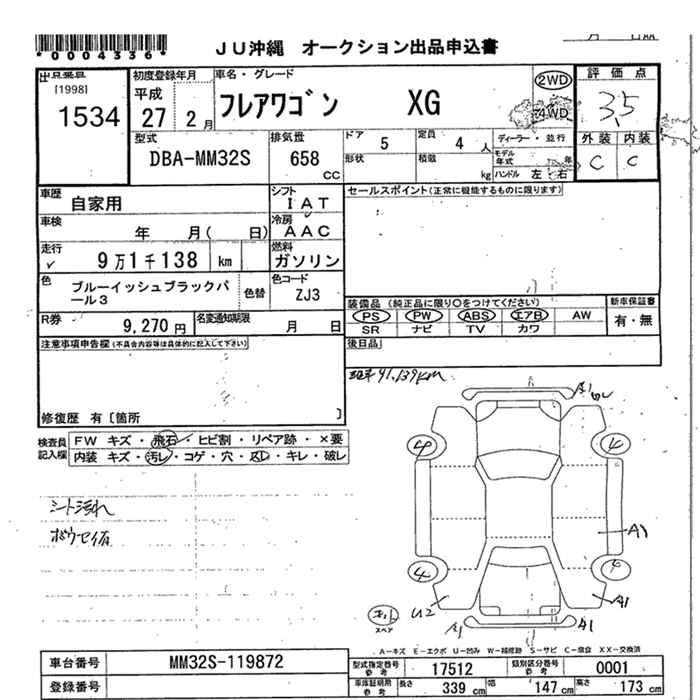 *0004336*
JU沖縄 オークション出品申込書
出品番号 初度登録年月 車名・グレード 2WD 評価点
[1998] 平成 4WD
1534 27 2月 フレアワゴン XG 3.5
型式 排気量 ドア 5 定員 4人 ディーラー・並行 外装 内装
DBA-MM32S 658 cc 形状 積載 kg モデル年式 年 C C
ハンドル 左・右
車歴 自家用 シフト IAT セールスポイント(正常に機能するものに限ります)
車検 年 月( 日) 冷房 AAC
走行 9万1千138 km 燃料 ガソリン
色 ブルーイッシュブラックパール3 色替 色コード ZJ3
装備品(純正品に限り○をつけてください) 新車保証書
PS PW ABS エアB AW 有・無
SR ナビ TV カワ
R券 9,270円 名変通知期限 月 日
後日品
注意事項申告欄(不具合内容等は具体的に記入して下さい)
91,139km
修復歴 有[箇所 ]
検査員記入欄 FW キズ・飛石・ヒビ割・リペア跡・×要
内装 キズ・汚レ・コゲ・穴・スレ・キレ・破レ
シート汚れ
A1
4
4
A1
U2
A1
A1
スペア
A-キズ E-エクボ U-凹み W-補修跡 S-サビ C-腐食 XX-交換済
車台番号 MM32S-119872
型式指定番号 参考 17512 類別区分番号 参考 0001
登録番号
車庫証明用 参考 長さ 339 cm 幅 147 cm 高さ 173 cm